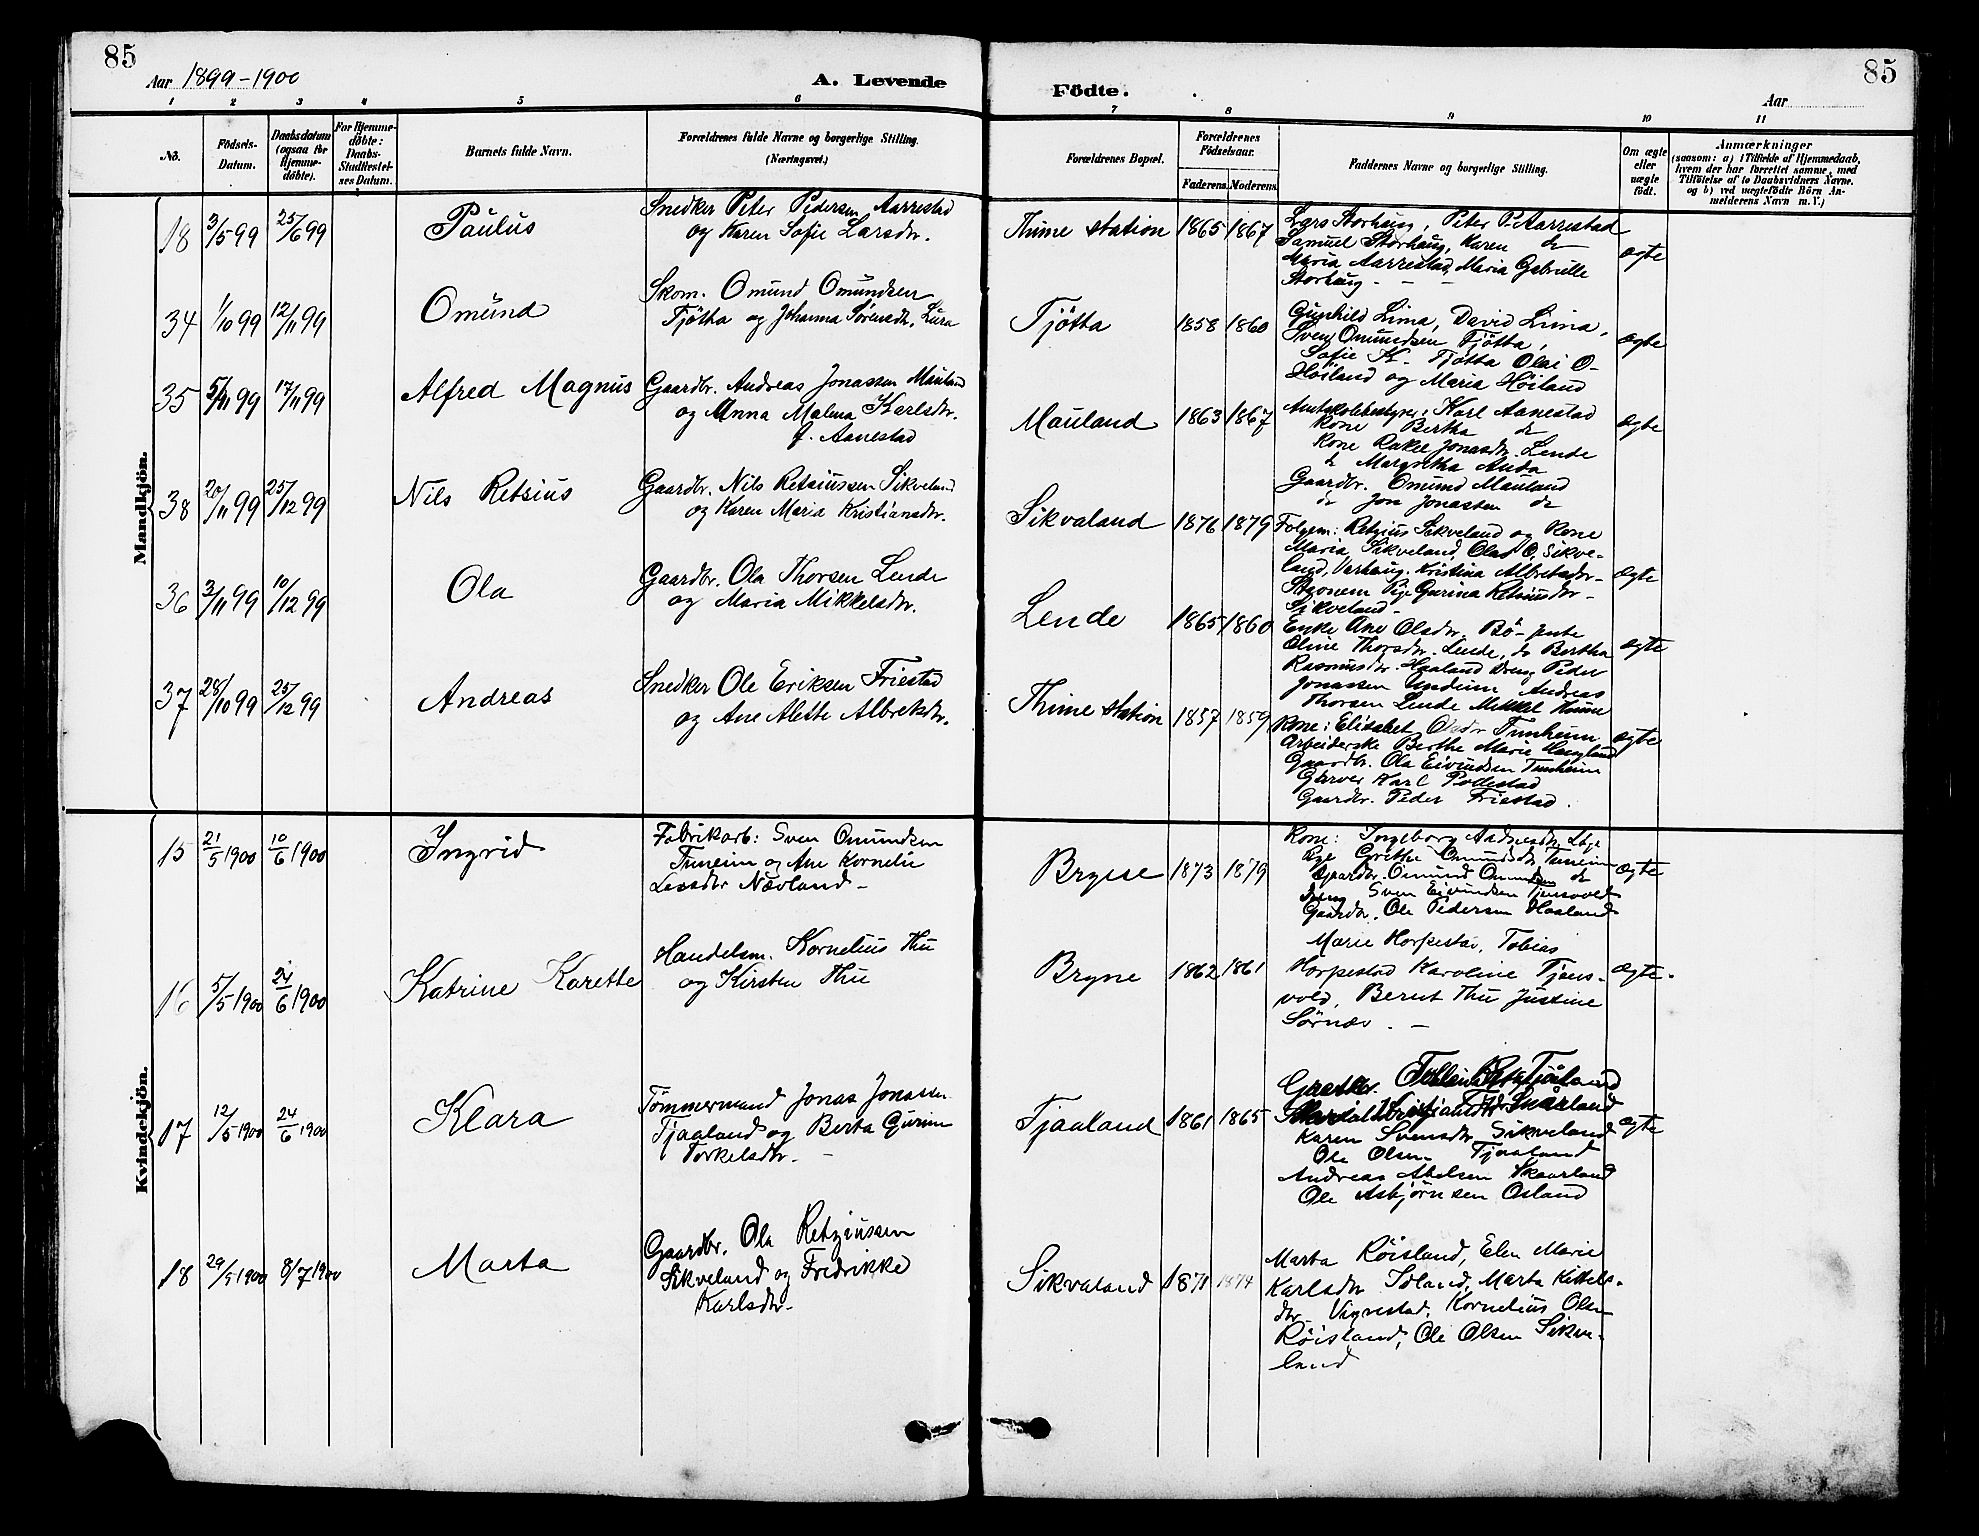 85
Aar 1899-1900
A. Levende
1 2 3 4 5 6
No.
Födsels-Datum.
Daabsdatum (ogsaa for Hjemmedöbte).
For Hjemmedöbte: Daabs-Stadfæstelses Datum.
Barnets fulde Navn.
Forældrenes fulde Navne og borgerlige Stilling. (Næringsvei.)
Mandkjön.
18 3/5 99 25/6 99 Paulus
Snedker Peter Pedersen Aarrestad
og Karen Sofie Larsdtr.
34 1/10 99 12/11 99 Omund
Skom. Omund Omundsen
Tjøtta og Johanna Sørensdtr. Lura
35 5/11 99 17/11 99 Alfred Magnus
Gaardbr. Andreas Jonassen Mauland
og Anna Malna Karlsdtr.
f. Aanestad
38 20/11 99 25/12 99 Nils Retsius
Gaardbr. Nils Retsiussen Sikveland
og Karen Maria Kristiansdtr.
36 3/11 99 10/12 99 Ola
Gaardbr. Ola Thorsen Lende
og Maria Mikkelsdtr.
37 28/10 99 25/12 99 Andreas
Snedker Ole Eriksen Friestad
og Ane Alette Albretsdtr.
Kvindekjön.
15 21/5 1900 10/6 1900 Ingrid
Fabrikarb: Sven Omundsen
Tuneim og Ane Kornelie
Larsdtr Nævland -
16 5/5 1900 24/6 1900 Katrine Karette
Handelsm. Kornelius Thu
og Kirsten Thu
17 12/5 1900 24/6 1900 Klara
Tømmermand Jonas Jonassen
Tjaaland og Berta Gurine
Torkelsdtr. -
18 29/5 1900 8/7 1900 Marta
Gaardbr. Ola Retziussen
Sikveland og Fredrikke
Karlsdtr-
85
Födte.
Aar
7 8 9 10 11
Forældrenes Bopæl.
Forældrenes Födselsaar.
Faderens. Moderens.
Faddernes Navne og borgerlige Stilling.
Om ægte eller uægte födt.
Anmærkninger
(saasom: a) i Tilfælde af Hjemmedaab,
hvem der har forrettet samme, med
Tilföielse af to Daabsvidners Navne,
og b) ved uegtefödte Börn Anmelderens Navn m. V.)
Thime station 1865 1867
Lars Storhaug, Peter P. Aarrestad
Samuel Storhaug, Karen do
Maria Aarrestad, Maria Gabrielle
Storhaug. - -
ægte
Tjøtta 1858 1860
Gunhild Lima, David Lima,
Sven Omundsen Tjøtta,
Sofie K. Tjøtta Olai O-
Høiland og Maria Høiland
ægte
Mauland 1863 1867
Amtskolebestyrer: Karl Aanestad
Kone Bertha do
Kone Rakel Jonasdtr. Lende
do Margretha Anda
Gaardbr. Omund Mauland
do Jon Jonassen do
ægte
Sikvaland 1876 1879
Folgem: Retzius Sikveland og Kone
Maria Sikveland, Olav O. Sikve-
land, Varhaug. Kristina Albretsdtr-
Pige Gurina Retsiusdtr-
Sikveland-
ægte
Lende 1865 1860
Enke Ane Olsdtr. Bö- Jente
Oline Thorsdtr. Lende, do Bertha
Rasmusdtr. Haaland Dreng Peder
Jonassen Undeim Andreas
Thorsen Lende Mikkel Thime
ægte
Thime station 1857 1859
Kone: Elisabet Olsdr Tunheim
Arbeiderske Berthe Marie Haugland
Gaardbr. Ola Eivindsen Tunheim
Garver Karl
Gaardbr. Peder Friestad.
ægte
Bryne 1873 1879
Kone: Ingeborg Andreasdtr Lÿge
Pige Grethe Omundsdtr Tuneim
Gaardbr. Omund Omundsen do
Dreng Sven Eivindsen Tjensvold
Gaardbr. Ole Pedersen Haaland
ægte
Bryne 1862 1861
Marie Horpestad, Tobias
Horpestad Karoline Tjens-
vold, Bernt Thu Justine
Sörnæs. -
ægte.
Tjaaland 1861 1865
Gaardbr. Tjåland
Karen Svensdtr Sikveland
Ole Olsen Tjaaland
Andreas Abelsen Skaarland
Ole Asbjørnsen Osland
ægte
Sikvaland 1871 1874
Marta Röisland, Elen Marie
Karlsdtr Island, Marta Kittels-
dtr. Vigrestad. Kornelius Olsen
Röisland, Ole Olsen Sikve-
land